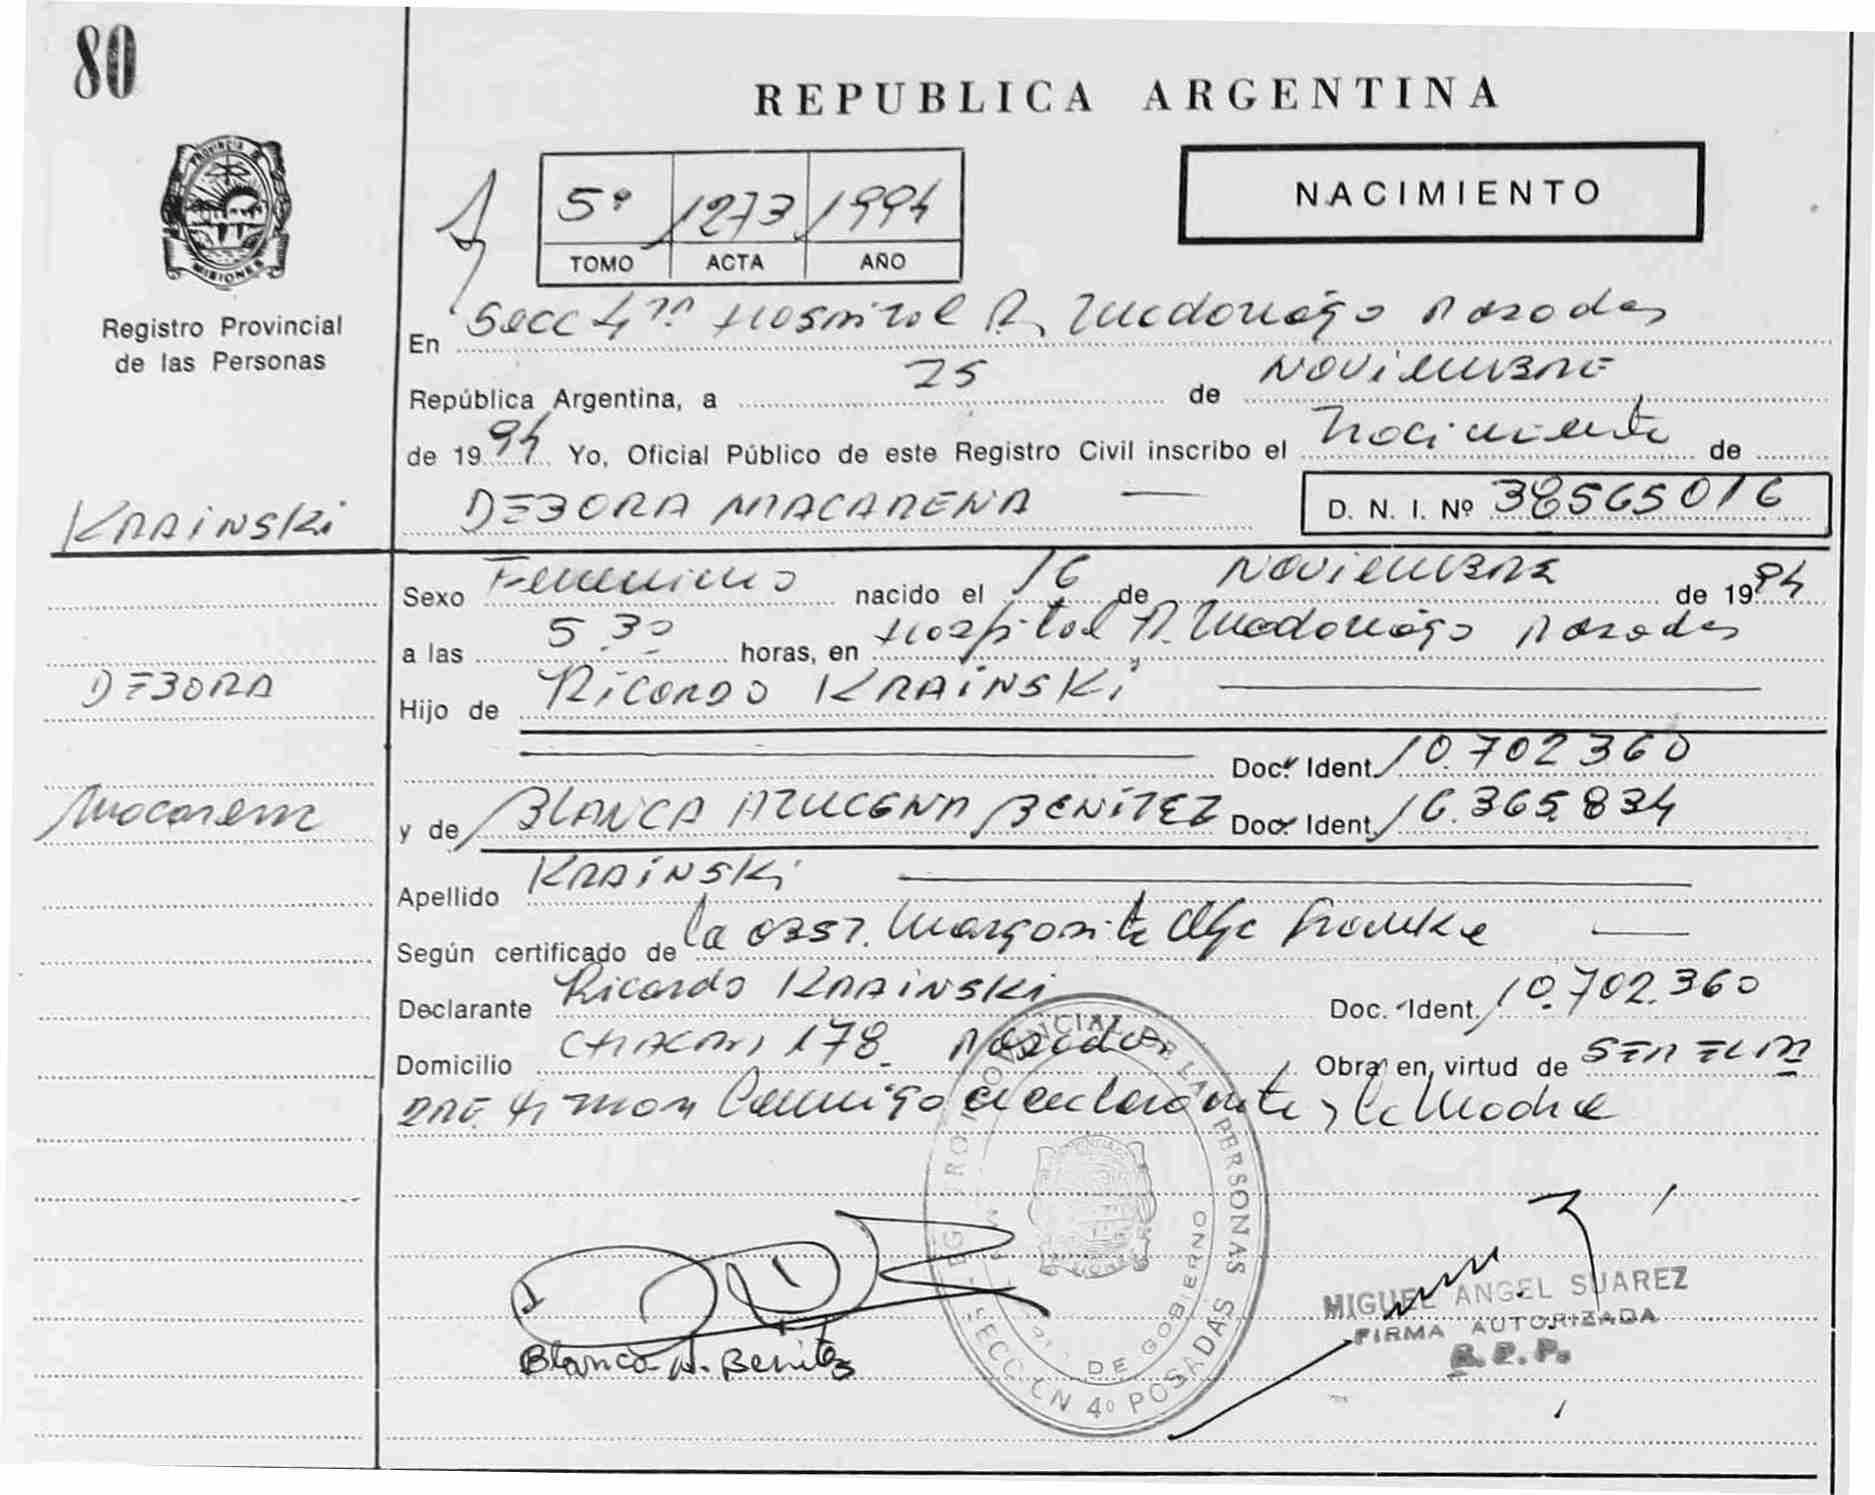 80
REPUBLICA ARGENTINA
PROVINCIA DE
MISIONES
Registro Provincial
de las Personas
5º 1273 1994
TOMO ACTA AÑO
NACIMIENTO
En Secc 4ta Hospital R. Madariaga Posadas
República Argentina, a 25 de NOVIEMBRE
de 1994 Yo, Oficial Público de este Registro Civil inscribo el Nacimiento de
KRAINSKI
DEBORA MACARENA
D. N. I. Nº 38565016
Sexo Femenino nacido el 16 de NOVIEMBRE de 1994
a las 5 30 horas, en Hospital R. Madariaga Posadas
DEBORA
Hijo de Ricardo KRAINSKI
Doc. Ident. 10.702360
Macarena
y de BLANCA AZUCENA BENÍTEZ Doc. Ident. 16.365.834
Apellido KRAINSKI
Según certificado de la OBST. Margarita Olga
Declarante Ricardo KRAINSKI Doc. Ident. 10.702.360
Domicilio 178 Posadas Obra en virtud de SER EL PA
DRE Firman Conmigo declarante y la Madre
REGISTRO PROVINCIAL DE LAS PERSONAS
DE GOBIERNO
SECCION 4º POSADAS
Blanca A. Benitez
MIGUEL ANGEL SUAREZ
FIRMA AUTORIZADA
R. P. P.